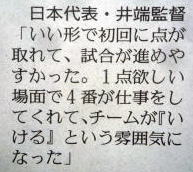 日本代表・井端監督
「いい形で初回に点が
取れて、試合が進めや
すかった。1点欲しい
場面で4番が仕事をし
てくれて、チームが『い
ける』という雰囲気に
なった」